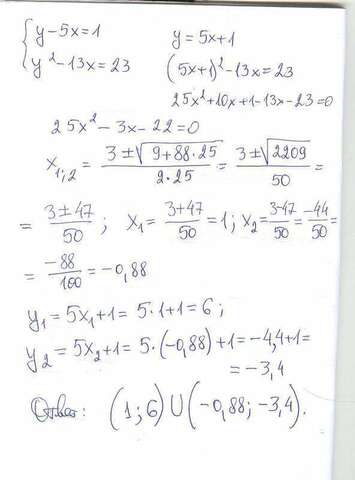 { y-5x=1    y=5x+1
y²-13x=23    (5x+1)²-13x=23
25x²+10x+1-13x-23=0
25x²-3x-22=0
x₁;₂ = (3±√(9+88·25))/(2·25) = (3±√2209)/50 =
= (3±47)/50 ; x₁ = (3+47)/50 = 1 ; x₂ = (3-47)/50 = -44/50 =
= -88/100 = -0,88
y₁ = 5x₁+1 = 5·1+1 = 6 ;
y₂ = 5x₂+1 = 5·(-0,88)+1 = -4,4+1 =
= -3,4
Ответ: (1;6) U (-0,88; -3,4).